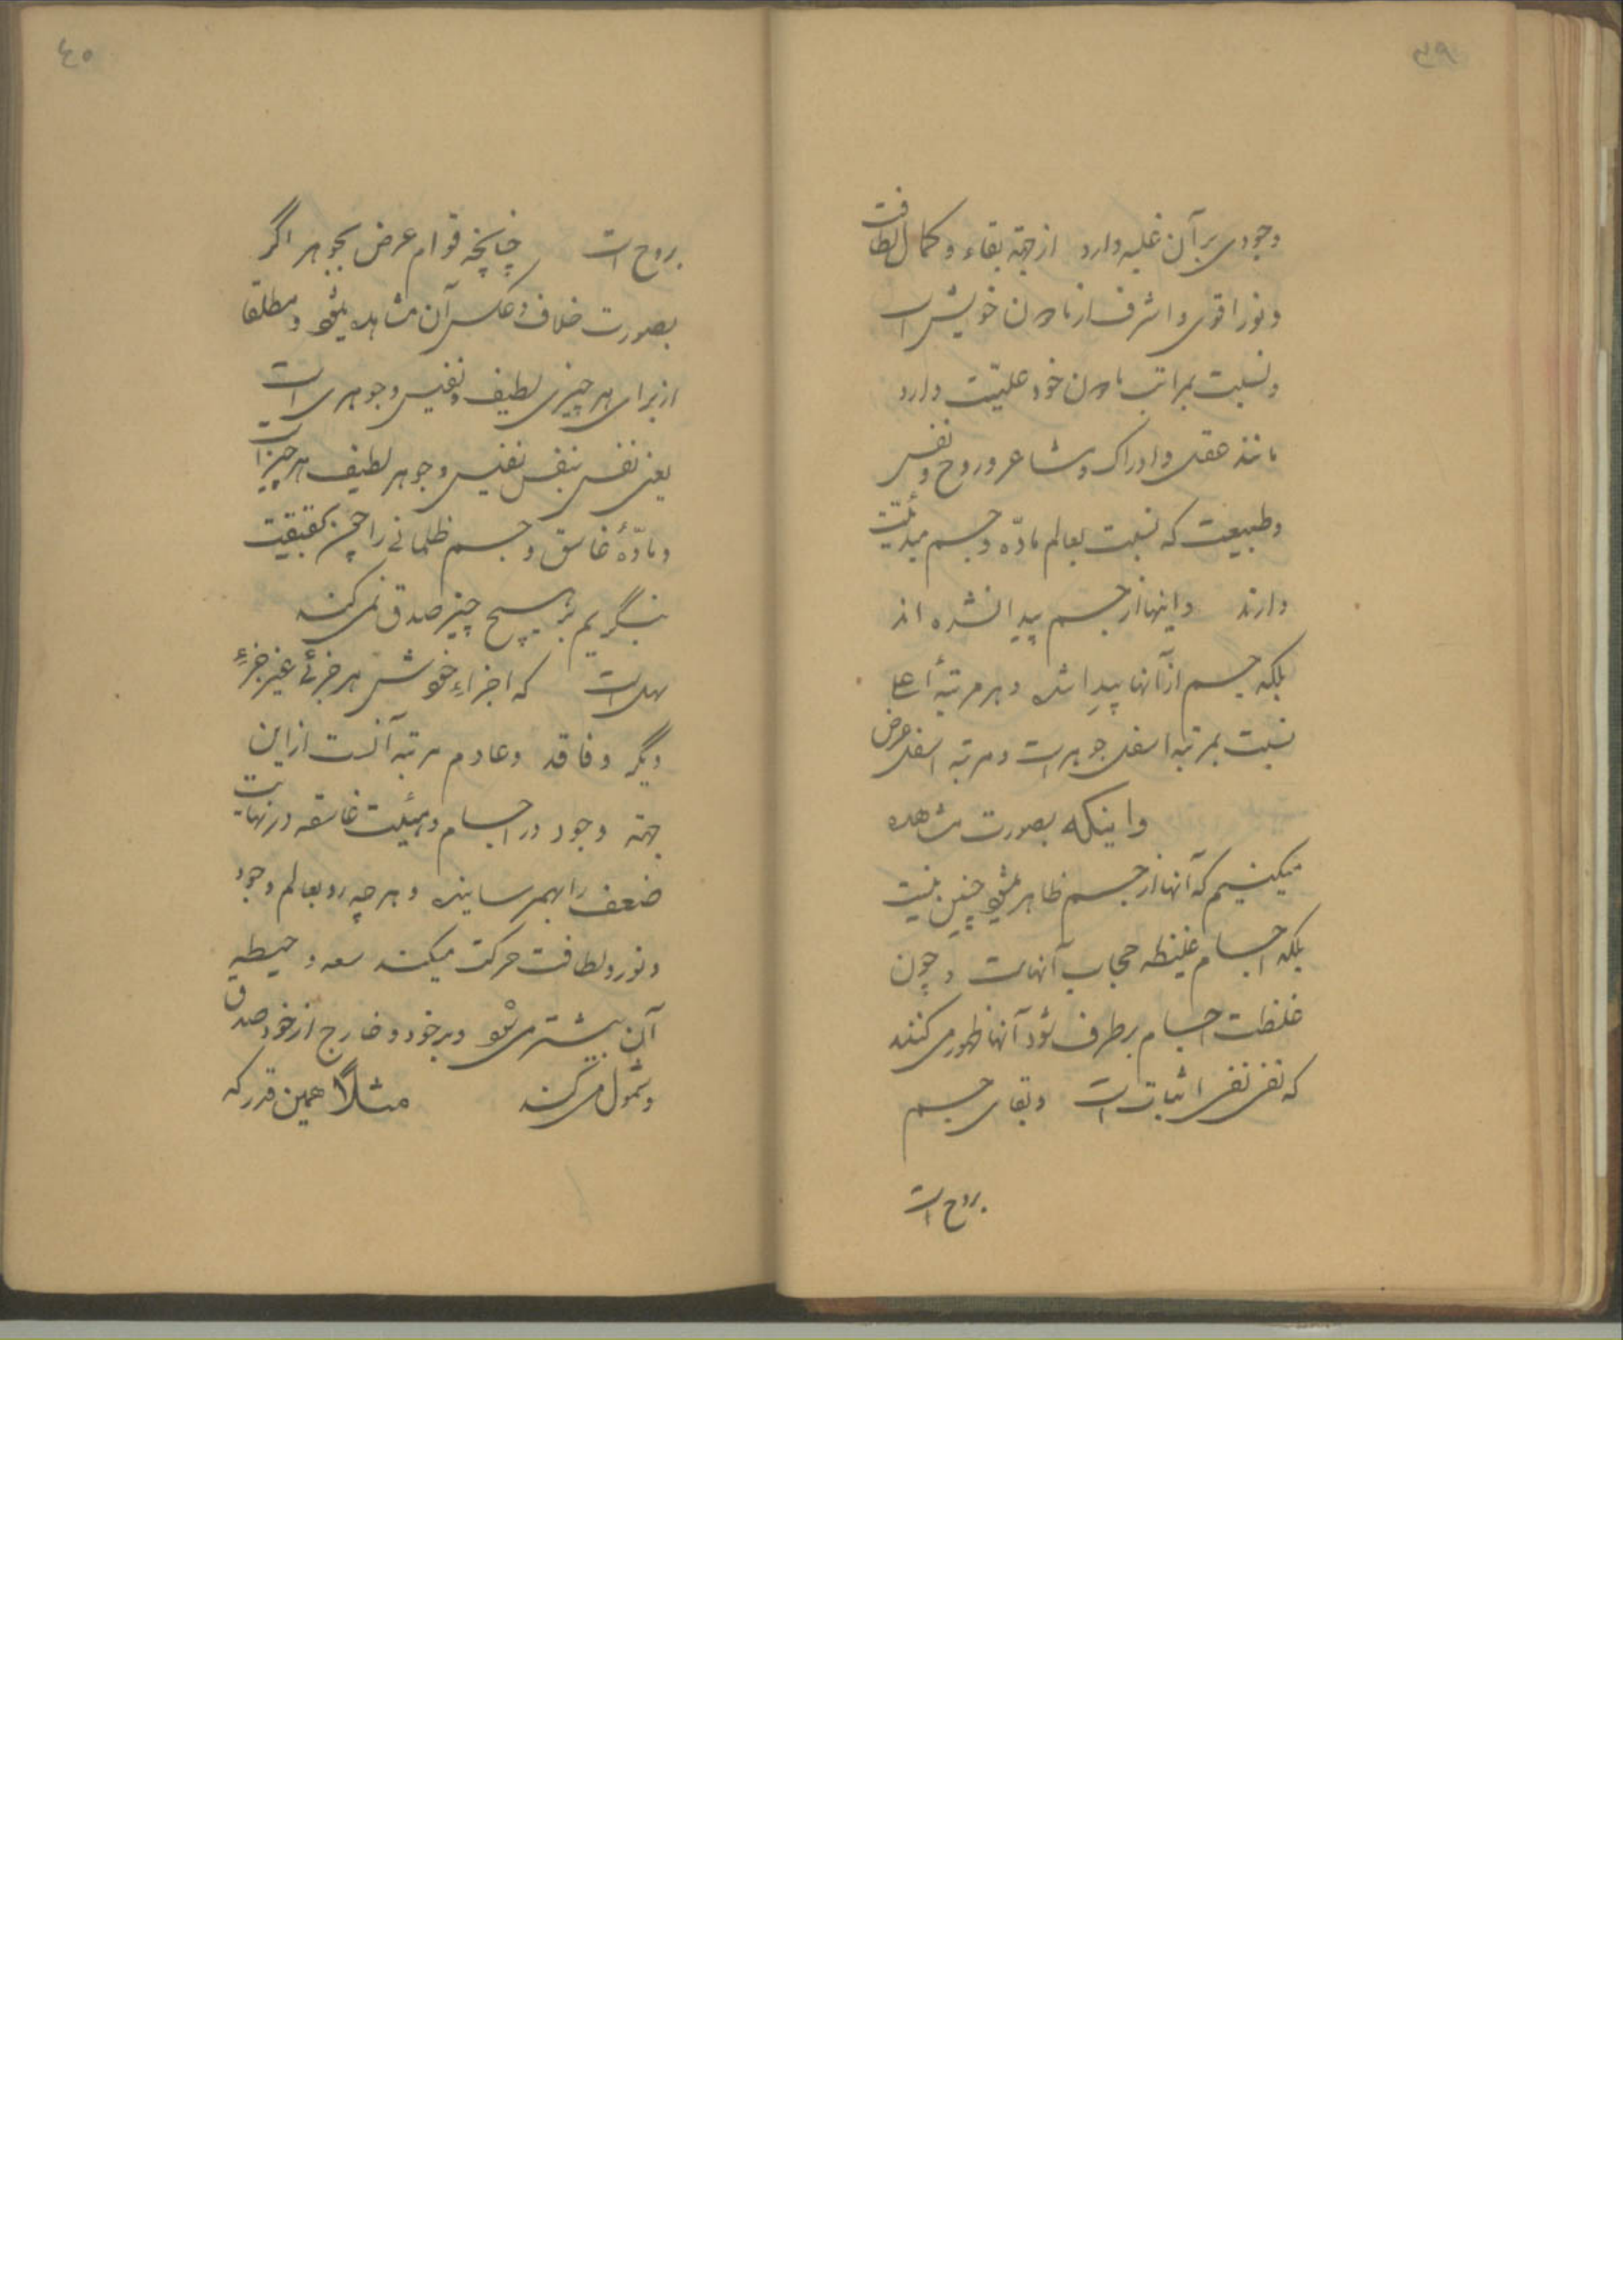 ۳۹
وجودی بر آن غلبه دارد از جهة بقاء و کمال لطافت
و نور اقوی و اشرف از مادون خویش است
و نسبت بمراتب مادون خود علیّت دارد
مانند عقل و ادراک و مشاعر و روح و نفس
و طبیعت که نسبت بعالم مادّه و جسم مبدئیّت
دارند و اینها از جسم پیدا نشده اند
بلکه جسم از آنها پیدا شده و هر مرتبهٔ اعلی
نسبت بمرتبه اسفل جوهر است و مرتبه اسفل عرض
و اینکه بصورت مشاهده
میکنیم که آنها از جسم ظاهر میشود چنین نیست
بلکه اجسام غلیظه حجاب آنهاست و چون
غلظت اجسام برطرف شود آنها ظهور می کنند
که نفی نفی اثبات است و بقای جسم
بروح است
۴۰
بروح است چنانچه قوام عرض بجوهر اگر
بصورت خلاف و عکس آن مشاهده میشود و مطلقا
از برای هر چیزی لطیف و نفیس و جوهری است
یعنی نفس بنفس نفیس و جوهر لطیف هر چیز است
و مادّهٔ غاسق و جسم ظلمانی را چون بحقیقت
بنگریم بر هیچ چیز صدق نمی کند
که اجزاء خودش هر جزئی غیر جزءِ
دیگر و فاقد و عادم مرتبه آنست از این
جهة وجود در اجسام و هیئت غاسقه در نهایت
ضعف را بهم رسانیده و هر چه رو بعالم وجود
و نور و لطافت حرکت میکند سعه و حیطه
آن بیشتر می شود و بر خود و خارج از خود صدق
و شمول می کند مثلاً همین قدر که